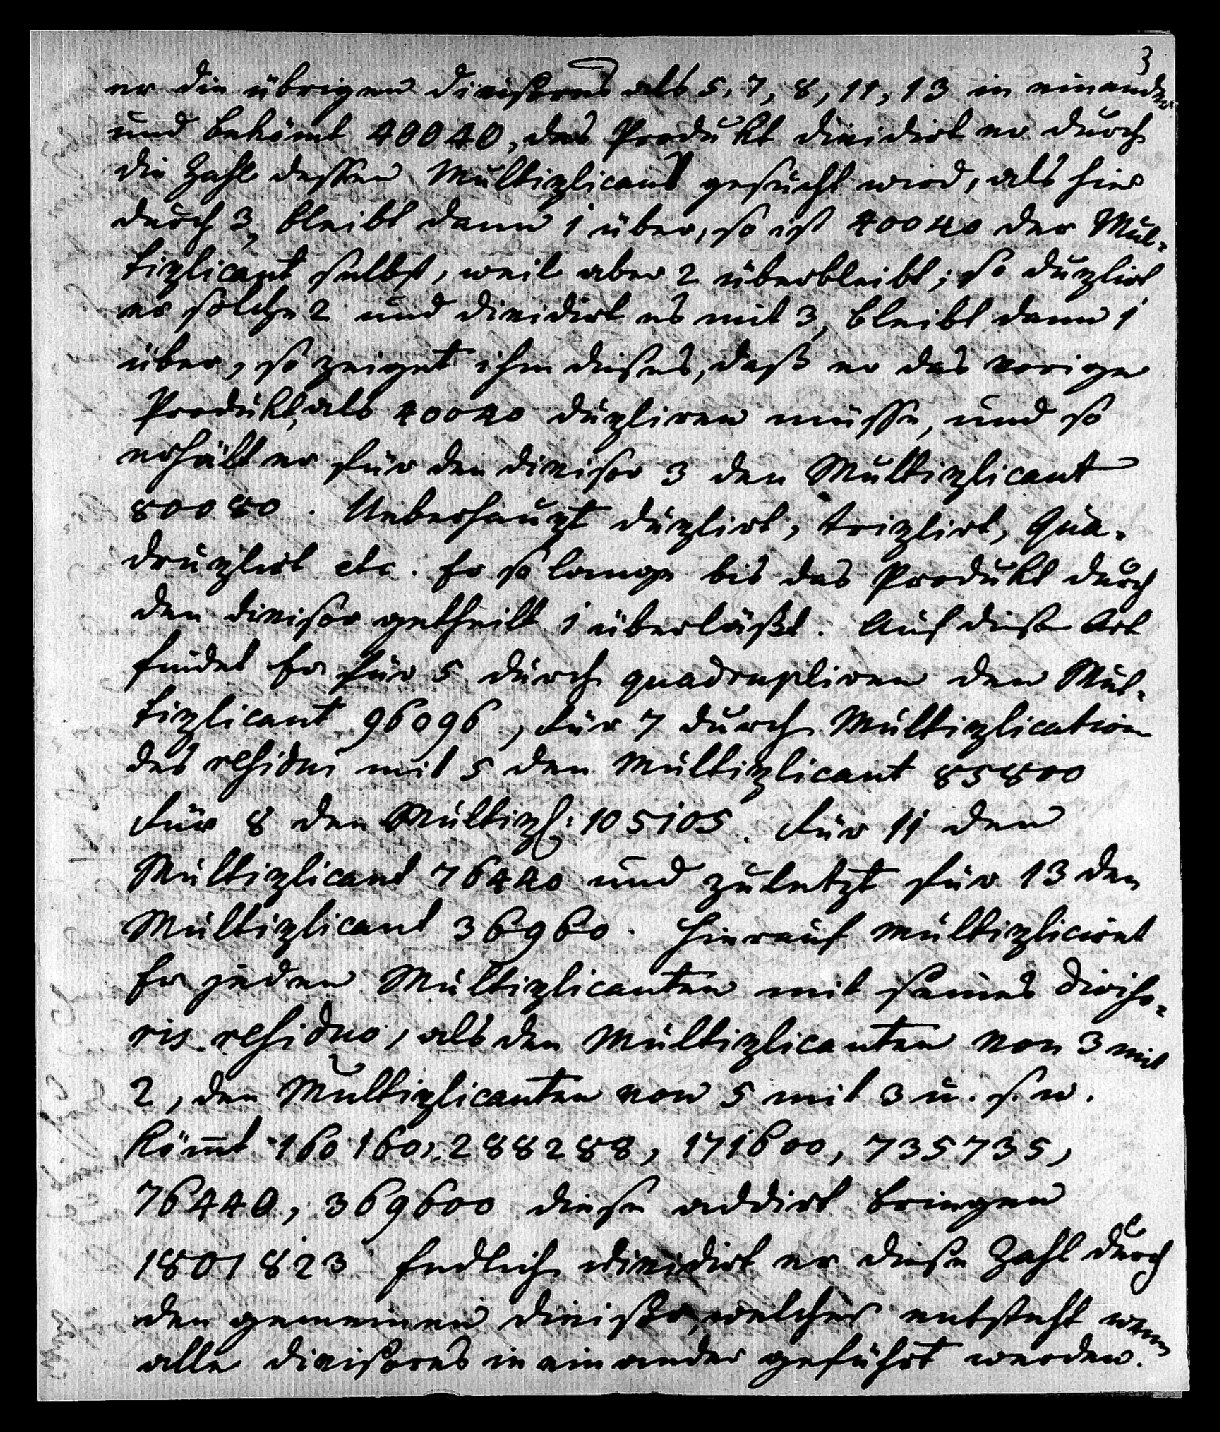 3
er die übrigen divisores als 5, 7, 8, 11, 13 in einander
und bekömt 40040, das Produkt dividirt er durch
die Zahl dessen Multiplicant gesucht wird, als hier
durch 3, bleibt dann 1 über, so ist 40040 der Mul-
tiplicant selbst, weil aber 2 überbleibt; so duplirt
er solche 2 und dividirt es mit 3, bleibt dann 1
über, so zeiget ihm dieses, daß er das vorige
Produkt, als 40040 dupliren müsse, und so
erhält er für den divisor 3 den Multiplicant
80080. Ueberhaupt duplirt, triplirt, Qua-
druplirt etc. Er so lange bis das Produkt durch
den divisor getheilt 1 überläßt. Auf diese Art
findet Er für 5 durch quadrupliren den Mul-
tiplicant 96096, für 7 durch Multiplication
des residui mit 5 den Multiplicant 85800
für 8 den Multipl: 105105. für 11 den
Multiplicant 76440 und zuletzt für 13 den
Multiplicant 36960. Hierauf multiplicirt
Er jeden Multiplicanten mit seines diviso-
ris residuo, als den Multiplicanten von 3 mit
2, den Multiplicanten von 5 mit 3 u. s. w.
kömt 160160, 288288, 171600, 735735,
76440, 369600 diese addirt bringen
1801823 Endlich dividirt er diese Zahl durch
den gemeinen divisor, welcher entsteht wenn
alle divisores in einander geführt werden.